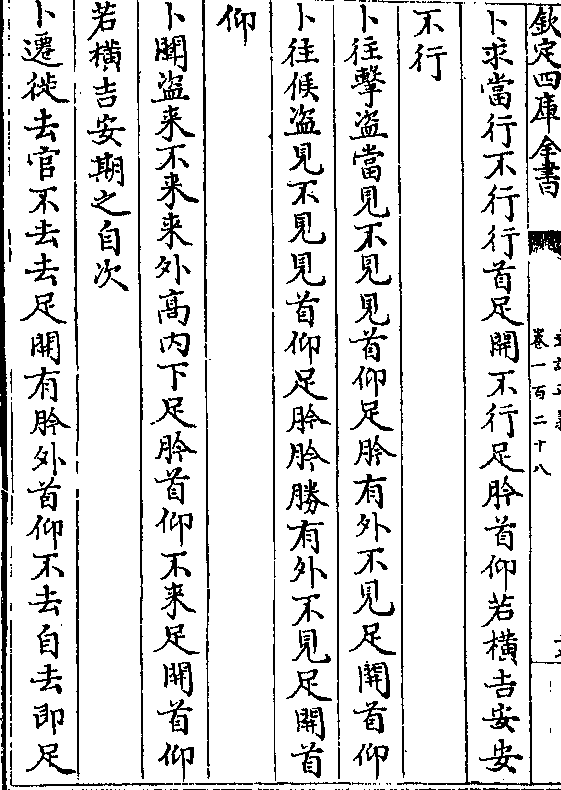 欽定四庫全書
卷一百二十八
卜求當行不行行首足開不行足肣首仰若橫吉安安
不行
卜往擊盜當見不見見首仰足肣有外不見足開首仰
卜往候盜見不見見首仰足肣肣勝有外不見足開首
仰
卜聞盜来不来来外高内下足肣首仰不来足開首仰
若橫吉安期之自次
卜遷徙去官不去去足開有肣外首仰不去自去即足